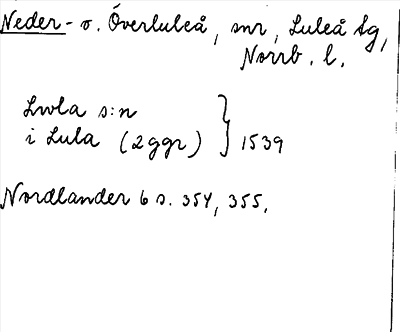 Neder- o. Överluleå, snr, Luleå tg,
Norrb. l.
Lwla s:n
i Lula (2 ggr) } 1539
Nordlander 6 s. 354, 355.